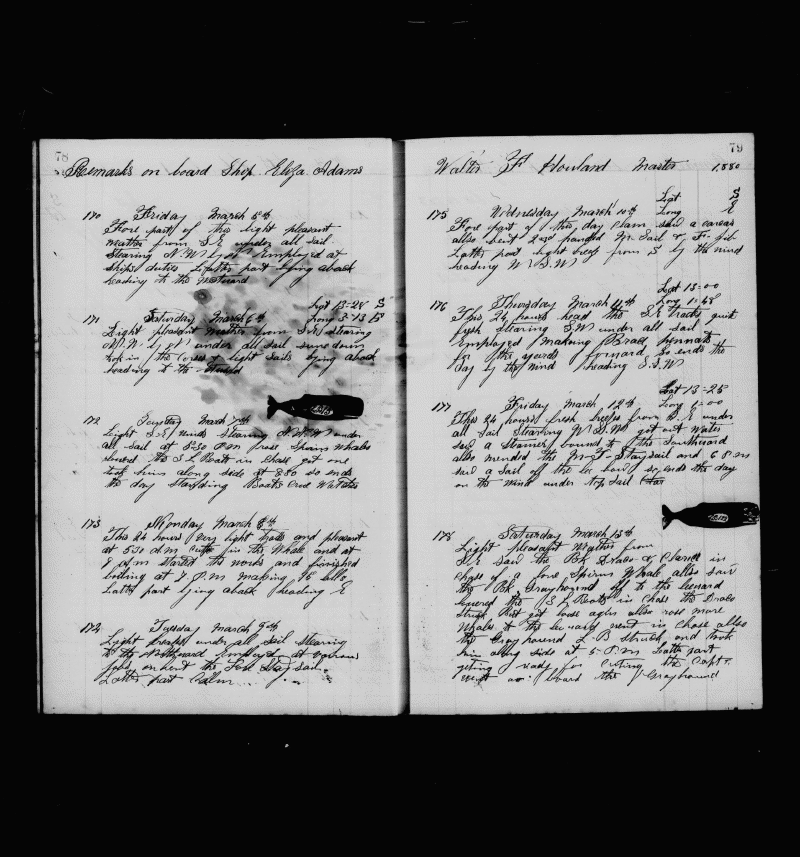 78
Remarks on board Ship Eliza Adams
170 Friday March 5th
Fore part of this light pleasant
weather from S E under all sail
Stearing N.W by W Employed at
Ships duties Latter part lying aback
heading to the Westward
Lat 13-28 S
Long 3-13 E
171 Saturday March 6th
Light pleasant weather from S.E stearing
N.W by W under all sail sundown
took in the light sails lying aback
heading to the
172 Sunday March 7th
Light S.E winds Stearing N.W.W under
all sail at 5.30 P.M rose Sperm Whales
lowered the S L Boats in Chase got one
took him along side at 8.30 so ends
the day standing Boats Crew Watches
173 Monday March 8th
This 24 hours very light trades and pleasant
at 5.30 A M cutt in the Whale and at
9 A M started the works and finished
boiling at 7 P.M making 15 bbls
Latter part lying aback heading E
174 Tuesday March 9th
Light breezes under all sail stearing
to the Northward Employed at various
jobs on bent the Fore Stay sail
Latter part Calm
79
Walter F Howland Master 1880
Lat S
Long E
175 Wednesday March 10th
Fore part of this day Clam saw a
also bent 2nd handed M. Sail & F. jib
Latter part light breeze from S by the wind
heading W S.W
Lat 13-00
Long 1-48
176 Thursday March 11th
This 24 hours head the S.E trades quite
fresh stearing S.W under all sail
Employed making Brace pennants
for the yards forward so ends the
day by the wind heading S.S.W
Lat 13-25
Long 1-00
177 Friday March 12th
This 24 hours fresh breeze from S.E under
all sail Stearing W.S.W got out water
saw a Steamer bound to the Southward
also mended the M-T-Staysail and 6 P.M
saw a sail off the lee bow so ends the day
on the wind under top sail
178 Saturday March 13th
Light pleasant weather from
S.E saw the Bk Draco & Clarice in
Chase of a lone Sperm Whale also saw
the Bk Greyhound off to the leeward
lowered the S L Boats in Chase the Draco
struck but got loose again also rose more
Whales to the leeward went in Chase also
the Greyhound L B Struck and took
him along side at 5 P.M Latter part
geting ready for Cuting the Capt.
went on board the Greyhound